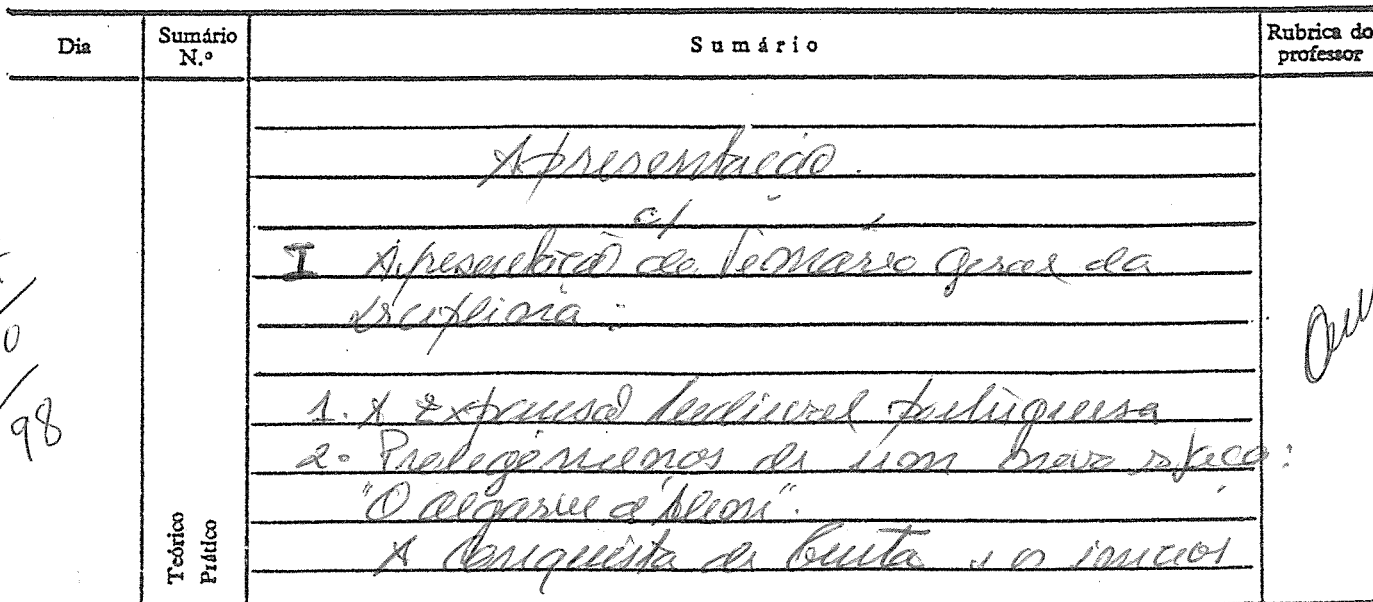 Dia
Sumário N.º
Sumário
Rubrica do professor
Apresentação.
c/
I Apresentação do Temário geral da
disciplina:
1. A Expansão medieval portuguesa
2. Prolegómenos de um novo espaço:
"O Algarve d'Além".
A Conquista de Ceuta e o início
0
98
Teórico
Prático